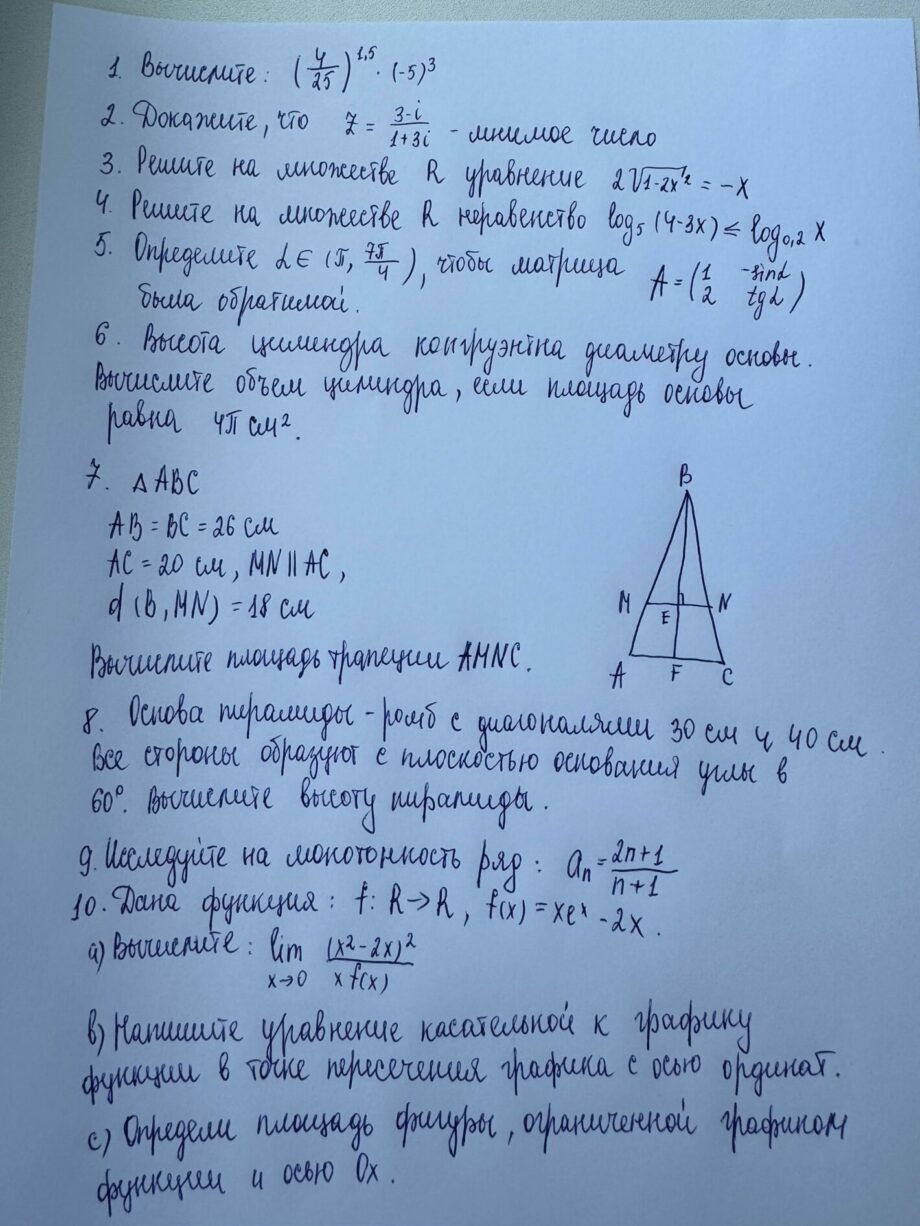 1. Вычислите: (4/25)^1,5 · (-5)^3
2. Докажите, что z = (3-i)/(1+3i) - мнимое число
3. Решите на множестве R уравнение 2√(1-2x²) = -x
4. Решите на множестве R неравенство log₅(4-3x) ≤ log₀,₂ x
5. Определите α ∈ (π, 7π/4), чтобы матрица A = (1 -sinα
была обратимой. 2 tgα)
6. Высота цилиндра конгруэнтна диаметру основы.
Вычислите объем цилиндра, если площадь основы
равна 4π см².
7. △ABC
AB = BC = 26 см
AC = 20 см, MN || AC,
d (B, MN) = 18 см
Вычислите площадь трапеции AMNC.
B
M E N
A F C
8. Основа пирамиды - ромб с диагоналями 30 см и 40 см.
Все стороны образуют с плоскостью основания углы в
60°. Вычислите высоту пирамиды.
9. Исследуйте на монотонность ряд: aₙ = (2n+1)/(n+1)
10. Дана функция: f: R→R, f(x) = xeˣ - 2x.
a) Вычислите: lim x→0 (x²-2x)²/(x f(x))
b) Напишите уравнение касательной к графику
функции в точке пересечения графика с осью ординат.
c) Определи площадь фигуры, ограниченной графиком
функции и осью Ox.